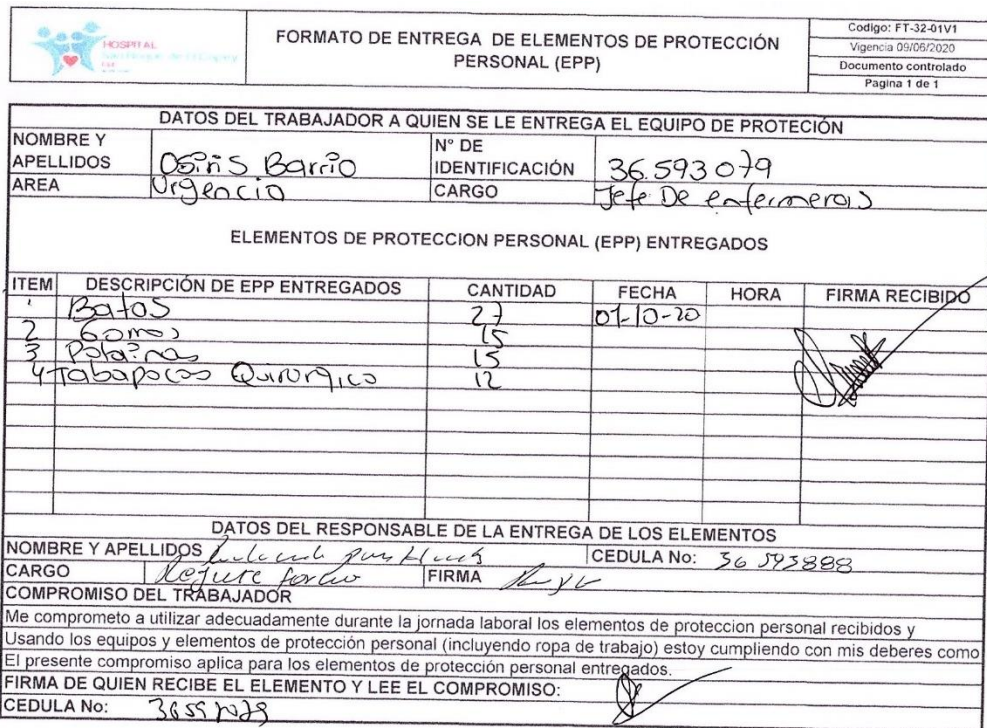 HOSPITAL
FORMATO DE ENTREGA DE ELEMENTOS DE PROTECCIÓN
PERSONAL (EPP)
Codigo: FT-32-01V1
Vigencia 09/06/2020
Documento controlado
Pagina 1 de 1
DATOS DEL TRABAJADOR A QUIEN SE LE ENTREGA EL EQUIPO DE PROTECIÓN
NOMBRE Y APELLIDOS Osiris Barrio N° DE IDENTIFICACIÓN 36.593079
AREA Urgencia CARGO Jefe De enfermeras
ELEMENTOS DE PROTECCION PERSONAL (EPP) ENTREGADOS
ITEM DESCRIPCIÓN DE EPP ENTREGADOS CANTIDAD FECHA HORA FIRMA RECIBIDO
1 Batas 27 01-10-20
2 Gorros 15
3 Polainas 15
4 Tabapocas Quirurgico 12
DATOS DEL RESPONSABLE DE LA ENTREGA DE LOS ELEMENTOS
NOMBRE Y APELLIDOS CEDULA No: 36 593888
CARGO FIRMA
COMPROMISO DEL TRABAJADOR
Me comprometo a utilizar adecuadamente durante la jornada laboral los elementos de proteccion personal recibidos y
Usando los equipos y elementos de protección personal (incluyendo ropa de trabajo) estoy cumpliendo con mis deberes como
El presente compromiso aplica para los elementos de protección personal entregados.
FIRMA DE QUIEN RECIBE EL ELEMENTO Y LEE EL COMPROMISO:
CEDULA No: